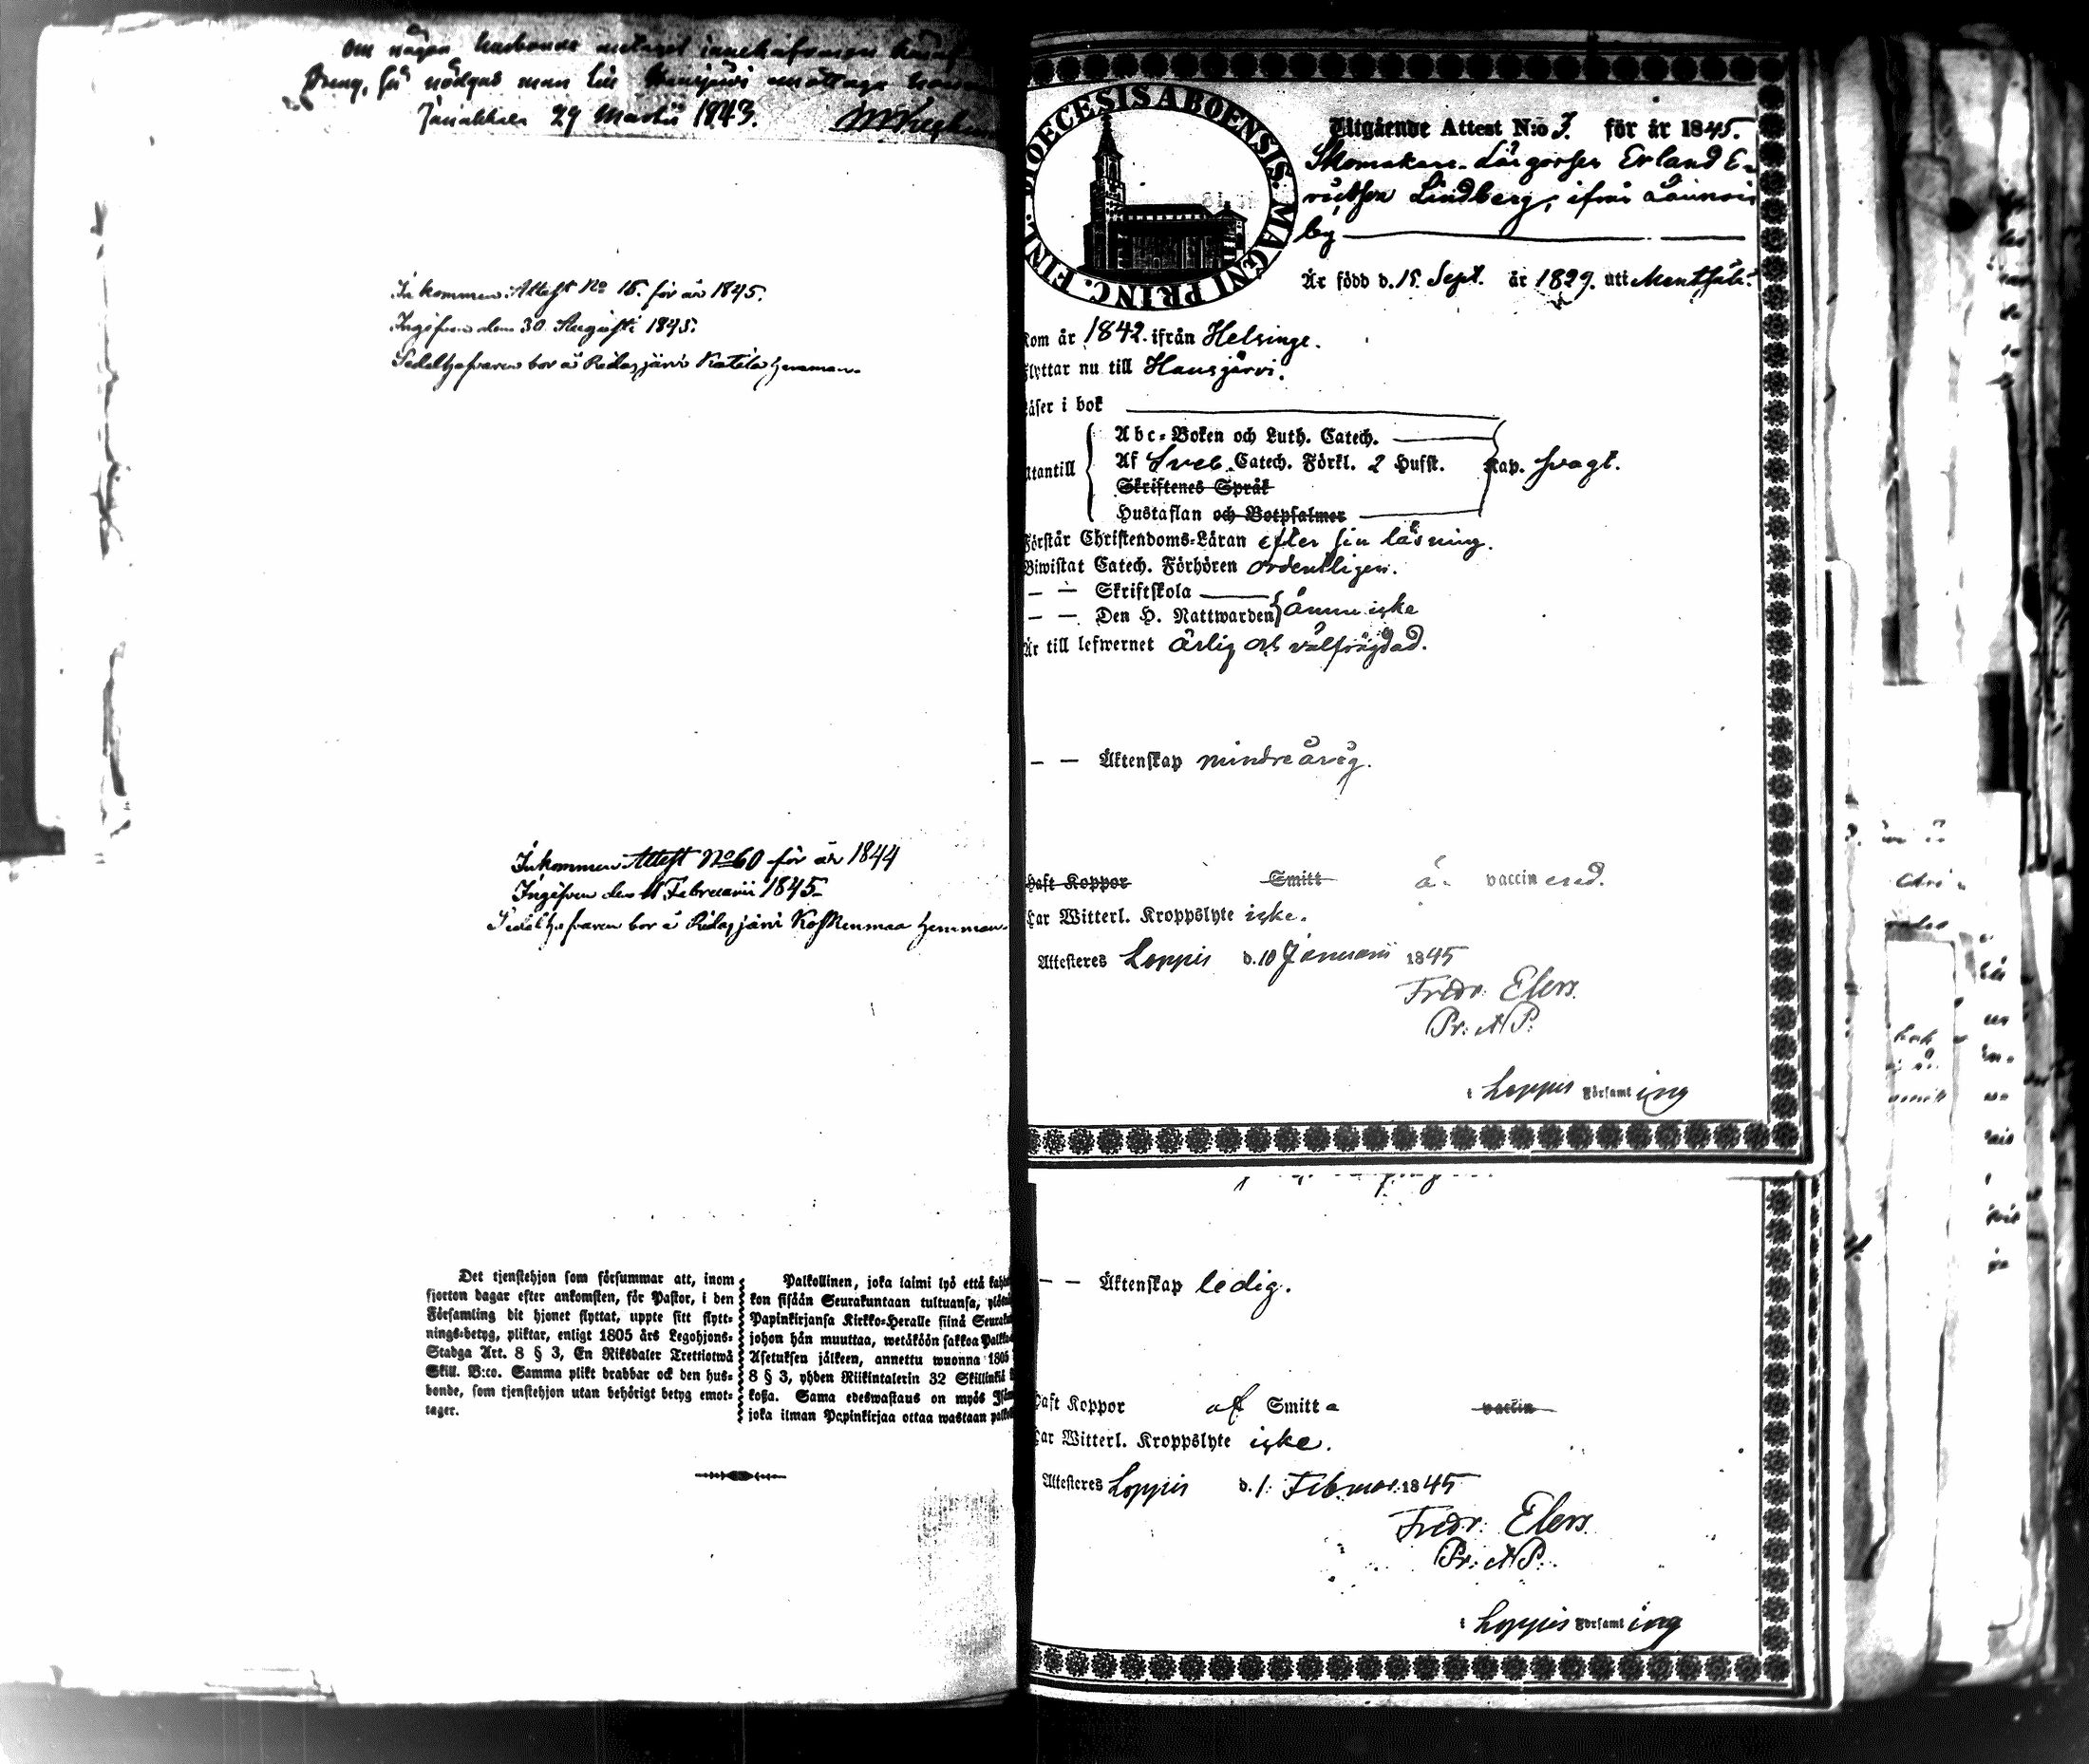 Om någon husbonde antagit innehafvaren häraf
Dreng, så nödgas man till Hausjärvi mottaga
Janakkala 29 Martii 1843.
Inkommen Attest No 15. för år 1845.
Ingifven den 30 Augusti 1845.
Sedelhafvaren bor å Ridasjärvi Katila hemman.
Inkommen Attest No 60 för år 1844
Ingifven den 11 Februarii 1845.
Sedelhafvaren bor å Ridasjärvi Koskenmaa hemman.
Det tjenstehjon som försummar att, inom
fjorton dagar efter ankomsten, för Pastor, i den
Församling dit hjonet flyttat, uppte sitt flytt-
nings-betyg, pliktar, enligt 1805 års Legohjons-
Stadga Art. 8 § 3, En Riksdaler Trettiotwå
Skill. B:co. Samma plikt drabbar ock den hus-
bonde, som tjenstehjon utan behörigt betyg emot-
tager.
Palkollinen, joka laimi lyö että
kon sisään Seurakuntaan tultuansa,
Papinkirjansa Kirkko-Heralle siinä
johon hän muuttaa, wetäköön sakkoa
Asetuksen jälkeen, annettu wuonna 1805
8 § 3, yhden Riikintalerin 32 Skillinkiä
koßa. Sama edeswastaus on myös
joka ilman Papinkirjaa ottaa wastaan
FINL. DIOECESIS ABOENSIS. MAGNI PRINC.
Utgående Attest N:o 3. för år 1845.
Skomakare-Lärgossen Erland E-
ricsson Lindberg, ifrån
by
Är född d. 15 Sept. år 1829. uti Mentsälä.
Kom år 1842. ifrån Helsinge.
Flyttar nu till Hausjärvi.
Läser i bok
Abc-Boken och Luth. Catech.
Utantill Af Sveb. Catech. Förkl. 2 Hufst. Kap. svagt.
Skriftenes Språk
Hustaflan och Botpsalmer
Förstår Christendoms-Läran efter sin läsning.
Biwistat Catech. Förhören ordentligen.
— — Skriftskola
— — Den H. Nattwarden ännu icke
Är till lefwernet ärlig och välfrägdad.
— — Äktenskap mindreårig.
Haft Koppor Smitt är vaccinerad.
Har Witterl. Kroppslyte icke.
Attesteres Loppis d. 10 Januarii 1845
Fredr. Elers.
Pr: A P:
i Loppis Församling
— — Äktenskap ledig.
Haft Koppor af Smitta vaccin
Har Witterl. Kroppslyte icke.
Attesteres Loppis d. 1. Februar. 1845
Fredr. Elers
Pr: A P:
i Loppis Församling